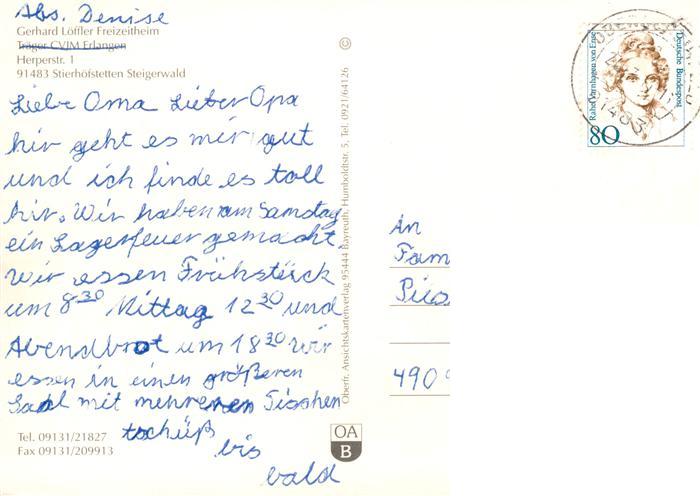 Abs. Denise
Gerhard Löffler Freizeitheim
Träger CVJM Erlangen
Herperstr. 1
91483 Stierhöfstetten Steigerwald
Liebe Oma Lieber Opa
hir geht es mir gut
und ich finde es toll
hir. Wir haben am Samstag
ein Lagerfeuer gemacht.
Wir essen Frühstück
um 8 30 Mittag 12 30 und
Abendbrot um 18 30 Wir
essen in einen größeren
Saal mit mehreren Tischen
tschüß
bis
bald
Tel. 09131/21827
Fax 09131/209913
©
Oberfr. Ansichtskartenverlag 95444 Bayreuth, Humboldtstr. 5, Tel. 0921/64126
OA
B
Rahel Varnhagen von Ense
Deutsche Bundespost
80
91483
An
Fam
490